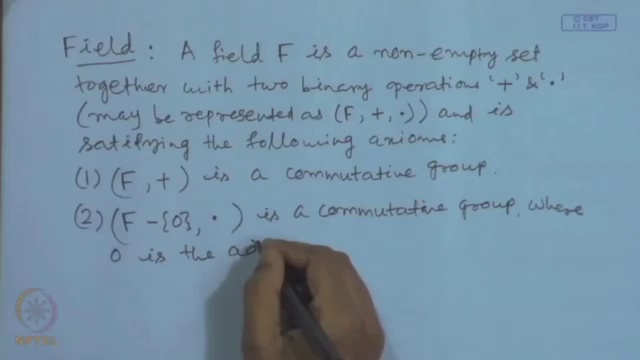 Field : A field F is a non-empty set
together with two binary operations '+' & '.'
(may be represented as (F, +, .)) and is
satisfying the following axioms:
(1) (F, +) is a commutative group.
(2) (F - {0}, .) is a commutative group, where
0 is the ad
© CET
I.I.T. KGP
NPTEL